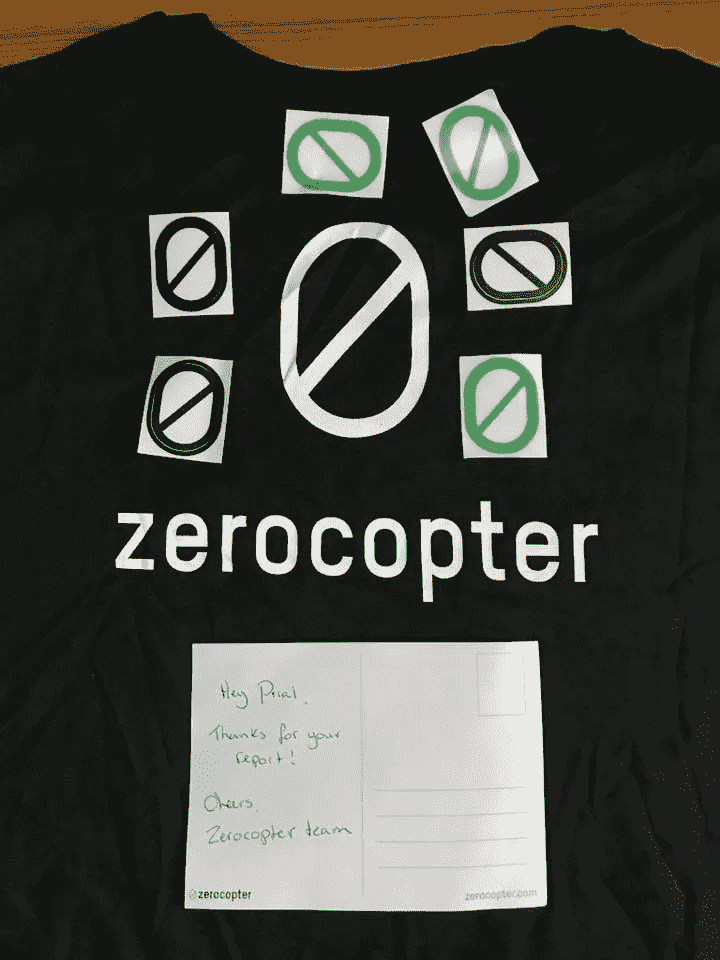 zerocopter
Hey Piral,
Thanks for your
report!
Cheers,
Zerocopter team
zerocopter
zerocopter.com